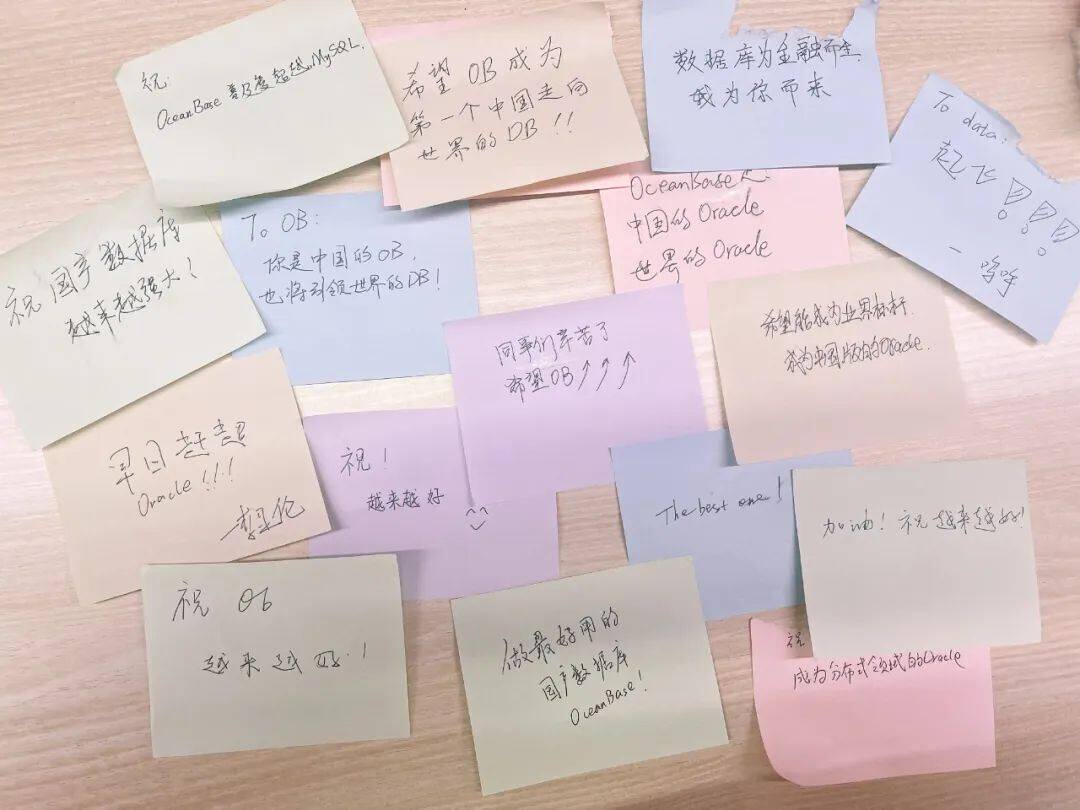 祝:
OceanBase 普及度超越MySQL.
希望 OB 成为
第一个中国走向
世界的DB!!
数据库为金融而生,
我为你而来
To data:
起飞
祝国产数据库
越来越强大!
To OB:
你是中国的OB,
也将引领世界的DB!
OceanBase
中国的Oracle
世界的Oracle
同事们辛苦了
希望OB↑↑↑
希望能成为业界标杆.
成为中国版的Oracle.
早日赶超
Oracle!!!
祝!
越来越好
^^
The best one!
加油!祝越来越好!
祝 Ob
越来越好!
做最好用的
国产数据库
OceanBase!
祝
成为分布式领域的Oracle